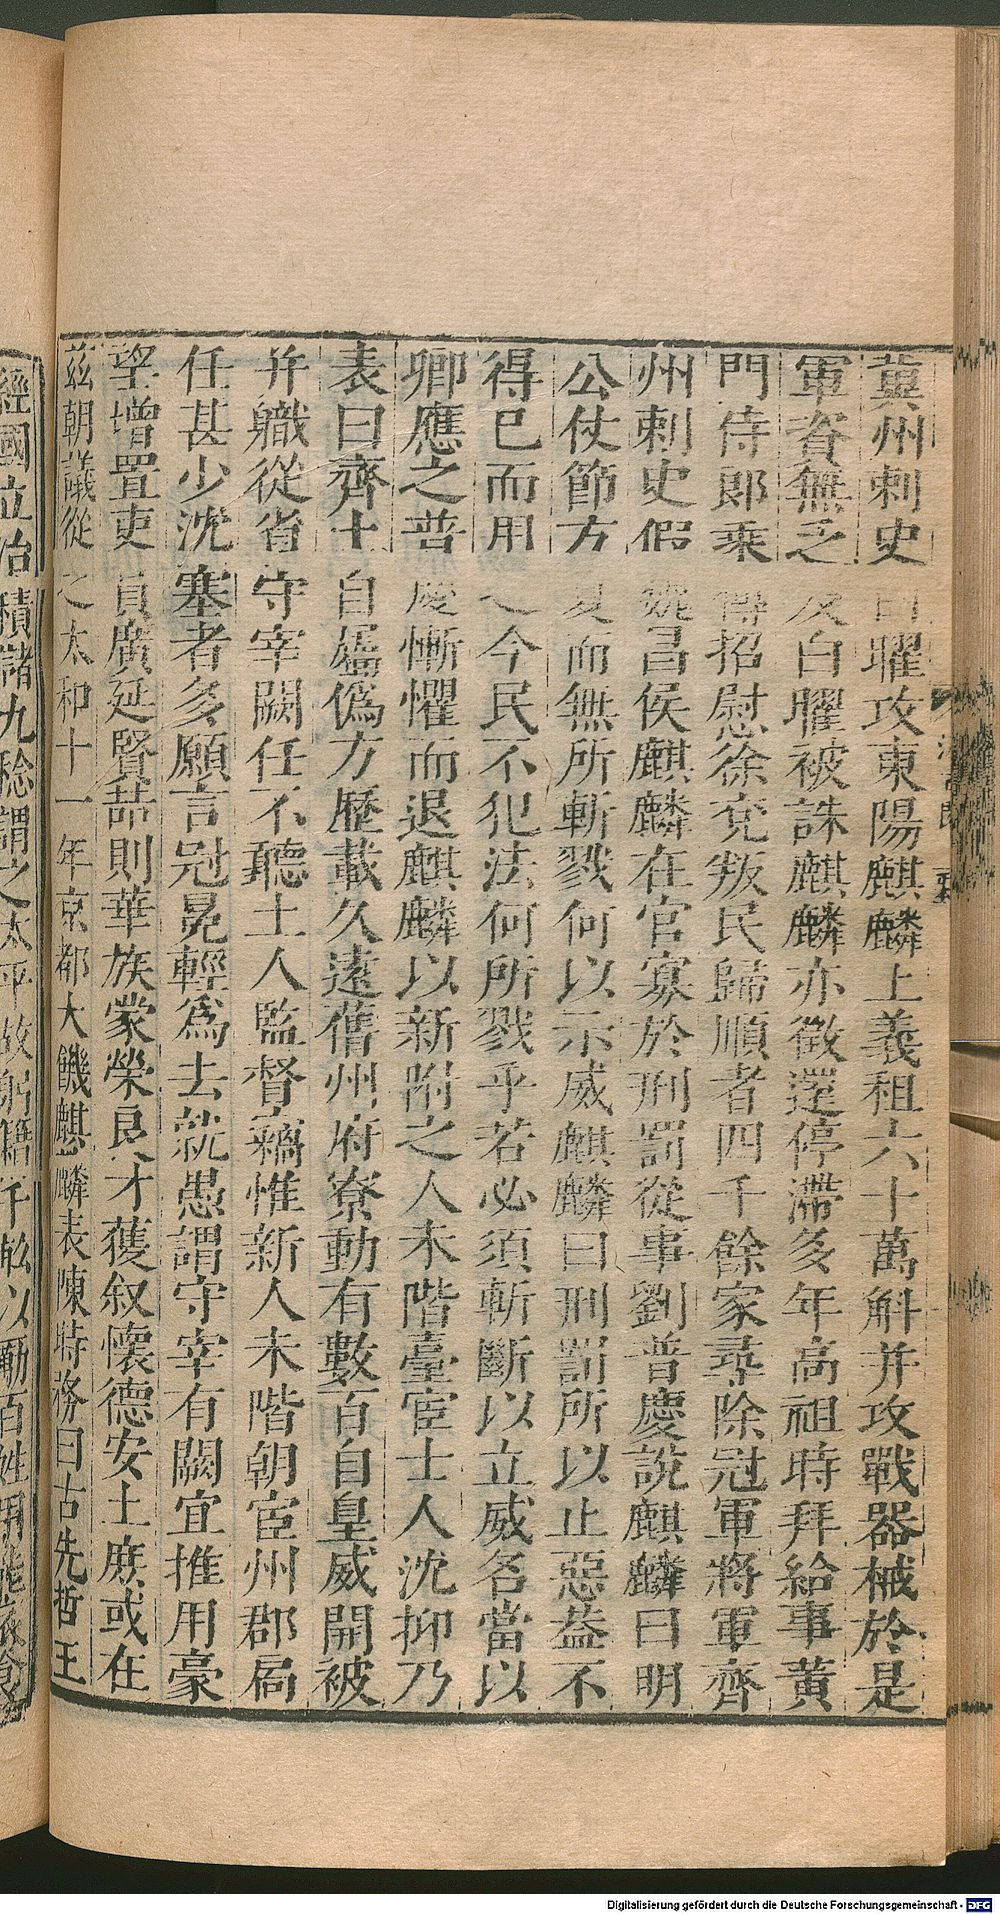 冀州刺史白曜攻東陽麒麟上義租六十萬斛并攻戰器械於是
軍資無乏及白曜被誅麒麟亦徵還停滯多年高祖時拜給事黃
門侍郎乘傳招慰徐兗叛民歸順者四千餘家尋除冠軍將軍齊
州刺史假魏昌侯麒麟在官寡於刑罰從事劉普慶說麒麟曰明
公仗節方夏而無所斬戮何以示威麒麟曰刑罰所以止惡蓋不
得已而用之今民不犯法何所戮乎若必須斬斷以立威名當以
卿應之普慶慚懼而退麒麟以新附之人未階臺宦士人沈抑乃
表曰齊土自屬偽方歷載久遠舊州府寮動有數百自皇威開被
并職從省守宰闕任不聽土人監督竊惟新人未階朝宦州郡局
任甚少沈塞者多願言冠冕輕為去就愚謂守宰有闕宜推用豪
望增置吏員廣延賢喆則華族蒙榮良才獲叙懷德安土庶或在
茲朝議從之太和十一年京都大饑麒麟表陳時務曰古先哲王
經國立治積儲九稔謂之太平故躬籍千畝以勵百姓用能衣食